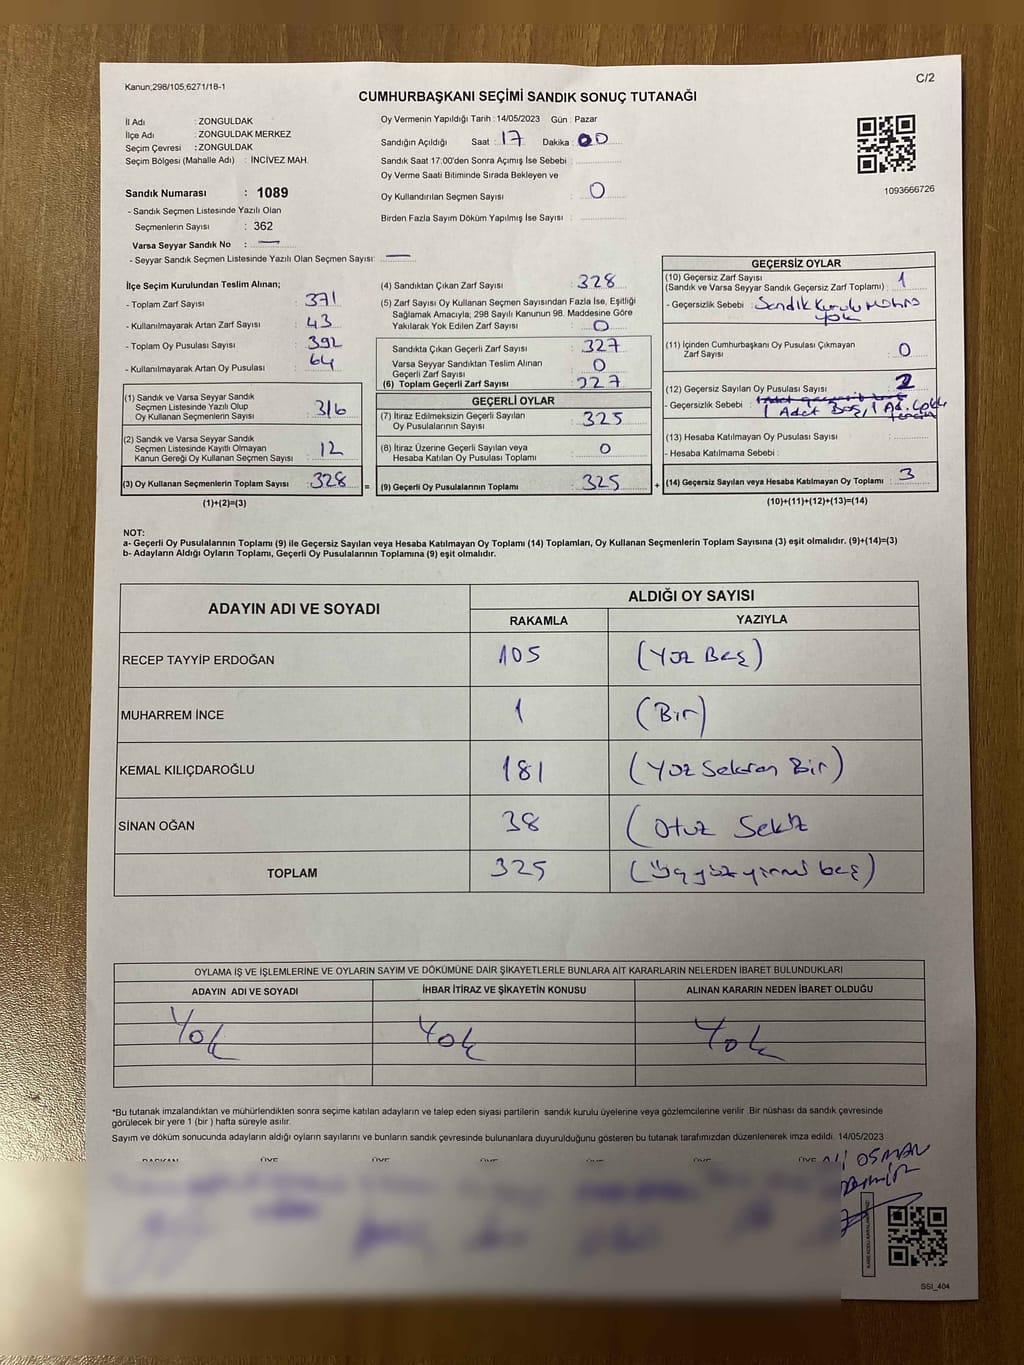 Kanun;298/105;6271/18-1
C/2
CUMHURBAŞKANI SEÇİMİ SANDIK SONUÇ TUTANAĞI
İl Adı : ZONGULDAK
İlçe Adı : ZONGULDAK MERKEZ
Seçim Çevresi : ZONGULDAK
Seçim Bölgesi (Mahalle Adı) : İNCİVEZ MAH.
Sandık Numarası : 1089
- Sandık Seçmen Listesinde Yazılı Olan
Seçmenlerin Sayısı : 362
Varsa Seyyar Sandık No : —
- Seyyar Sandık Seçmen Listesinde Yazılı Olan Seçmen Sayısı: —
Oy Vermenin Yapıldığı Tarih : 14/05/2023 Gün : Pazar
Sandığın Açıldığı Saat : 17 Dakika : 00
Sandık Saat 17:00'den Sonra Açımış İse Sebebi :
Oy Verme Saati Bitiminde Sırada Bekleyen ve
Oy Kullandırılan Seçmen Sayısı : 0
Birden Fazla Sayım Döküm Yapılmış İse Sayısı :
1093666726
İlçe Seçim Kurulundan Teslim Alınan;
- Toplam Zarf Sayısı : 371
- Kullanılmayarak Artan Zarf Sayısı : 43
- Toplam Oy Pusulası Sayısı : 392
- Kullanılmayarak Artan Oy Pusulası : 64
(1) Sandık ve Varsa Seyyar Sandık
Seçmen Listesinde Yazılı Olup
Oy Kullanan Seçmenlerin Sayısı : 316
(2) Sandık ve Varsa Seyyar Sandık
Seçmen Listesinde Kayıtlı Olmayan
Kanun Gereği Oy Kullanan Seçmen Sayısı : 12
(3) Oy Kullanan Seçmenlerin Toplam Sayısı : 328 =
(1)+(2)=(3)
(4) Sandıktan Çıkan Zarf Sayısı : 328
(5) Zarf Sayısı Oy Kullanan Seçmen Sayısından Fazla İse, Eşitliği
Sağlamak Amacıyla; 298 Sayılı Kanunun 98. Maddesine Göre
Yakılarak Yok Edilen Zarf Sayısı : 0
Sandıkta Çıkan Geçerli Zarf Sayısı : 327
Varsa Seyyar Sandıktan Teslim Alınan
Geçerli Zarf Sayısı : 0
(6) Toplam Geçerli Zarf Sayısı : 327
GEÇERLİ OYLAR
(7) İtiraz Edilmeksizin Geçerli Sayılan
Oy Pusulalarının Sayısı : 325
(8) İtiraz Üzerine Geçerli Sayılan veya
Hesaba Katılan Oy Pusulası Toplamı : 0
(9) Geçerli Oy Pusulalarının Toplamı : 325 +
GEÇERSİZ OYLAR
(10) Geçersiz Zarf Sayısı
(Sandık ve Varsa Seyyar Sandık Geçersiz Zarf Toplamı) : 1
- Geçersizlik Sebebi : Sandık Kurulu Mührü
Yok
(11) İçinden Cumhurbaşkanı Oy Pusulası Çıkmayan
Zarf Sayısı : 0
(12) Geçersiz Sayılan Oy Pusulası Sayısı : 2
- Geçersizlik Sebebi :
1 Adet Boş, 1 Ad. Çoklu
(13) Hesaba Katılmayan Oy Pusulası Sayısı :
- Hesaba Katılmama Sebebi :
(14) Geçersiz Sayılan veya Hesaba Katılmayan Oy Toplamı : 3
(10)+(11)+(12)+(13)=(14)
NOT:
a- Geçerli Oy Pusulalarının Toplamı (9) ile Geçersiz Sayılan veya Hesaba Katılmayan Oy Toplamı (14) Toplamları, Oy Kullanan Seçmenlerin Toplam Sayısına (3) eşit olmalıdır. (9)+(14)=(3)
b- Adayların Aldığı Oyların Toplamı, Geçerli Oy Pusulalarının Toplamına (9) eşit olmalıdır.
ADAYIN ADI VE SOYADI
ALDIĞI OY SAYISI
RAKAMLA YAZIYLA
RECEP TAYYİP ERDOĞAN 105 (Yüz Beş)
MUHARREM İNCE 1 (Bir)
KEMAL KILIÇDAROĞLU 181 (Yüz Seksen Bir)
SİNAN OĞAN 38 (Otuz Sekiz
TOPLAM 325 (Üçyüzyirmi beş)
OYLAMA İŞ VE İŞLEMLERİNE VE OYLARIN SAYIM VE DÖKÜMÜNE DAİR ŞİKAYETLERLE BUNLARA AİT KARARLARIN NELERDEN İBARET BULUNDUKLARI
ADAYIN ADI VE SOYADI İHBAR İTİRAZ VE ŞİKAYETİN KONUSU ALINAN KARARIN NEDEN İBARET OLDUĞU
Yok Yok Yok
*Bu tutanak imzalandıktan ve mühürlendikten sonra seçime katılan adayların ve talep eden siyasi partilerin sandık kurulu üyelerine veya gözlemcilerine verilir .Bir nüshası da sandık çevresinde
görülecek bir yere 1 (bir ) hafta süreyle asılır.
Sayım ve döküm sonucunda adayların aldığı oyların sayılarını ve bunların sandık çevresinde bulunanlara duyurulduğunu gösteren bu tutanak tarafımızdan düzenlenerek imza edildi. 14/05/2023
BAŞKAN ÜYE ÜYE ÜYE ÜYE ÜYE ÜYE
Ali OSMAN
SSI_404